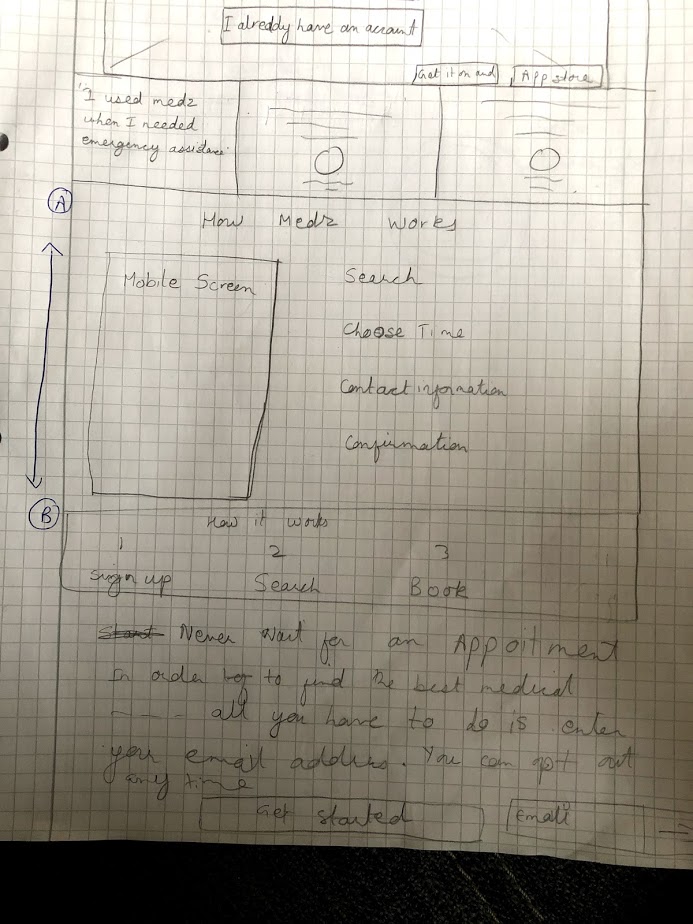 I already have an account
Get it on and
App store
"I used medz
when I needed
emergency assistance"
A
How Medz Works
Mobile Screen
Search
Choose Time
Contact information
Confirmation
B
How it works
1 2 3
sign up Search Book
Start Never Wait for an Appoitment
In order to find the best medical
---- all you have to do is enter
your email address. You can opt out
any time
Get started
Email